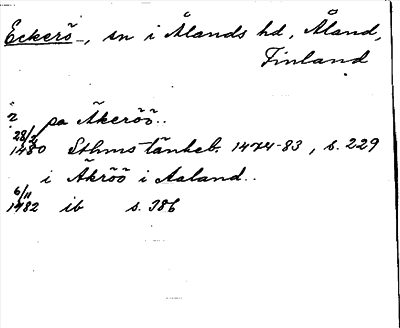 Eckerö, sn i Ålands hd, Åland,
Finland
i pa Äkeröö..
28/2
1480 Sthms tänkeb. 1474-83, s. 229
i Äkröö i Aaland..
6/11
1482 ib s. 386